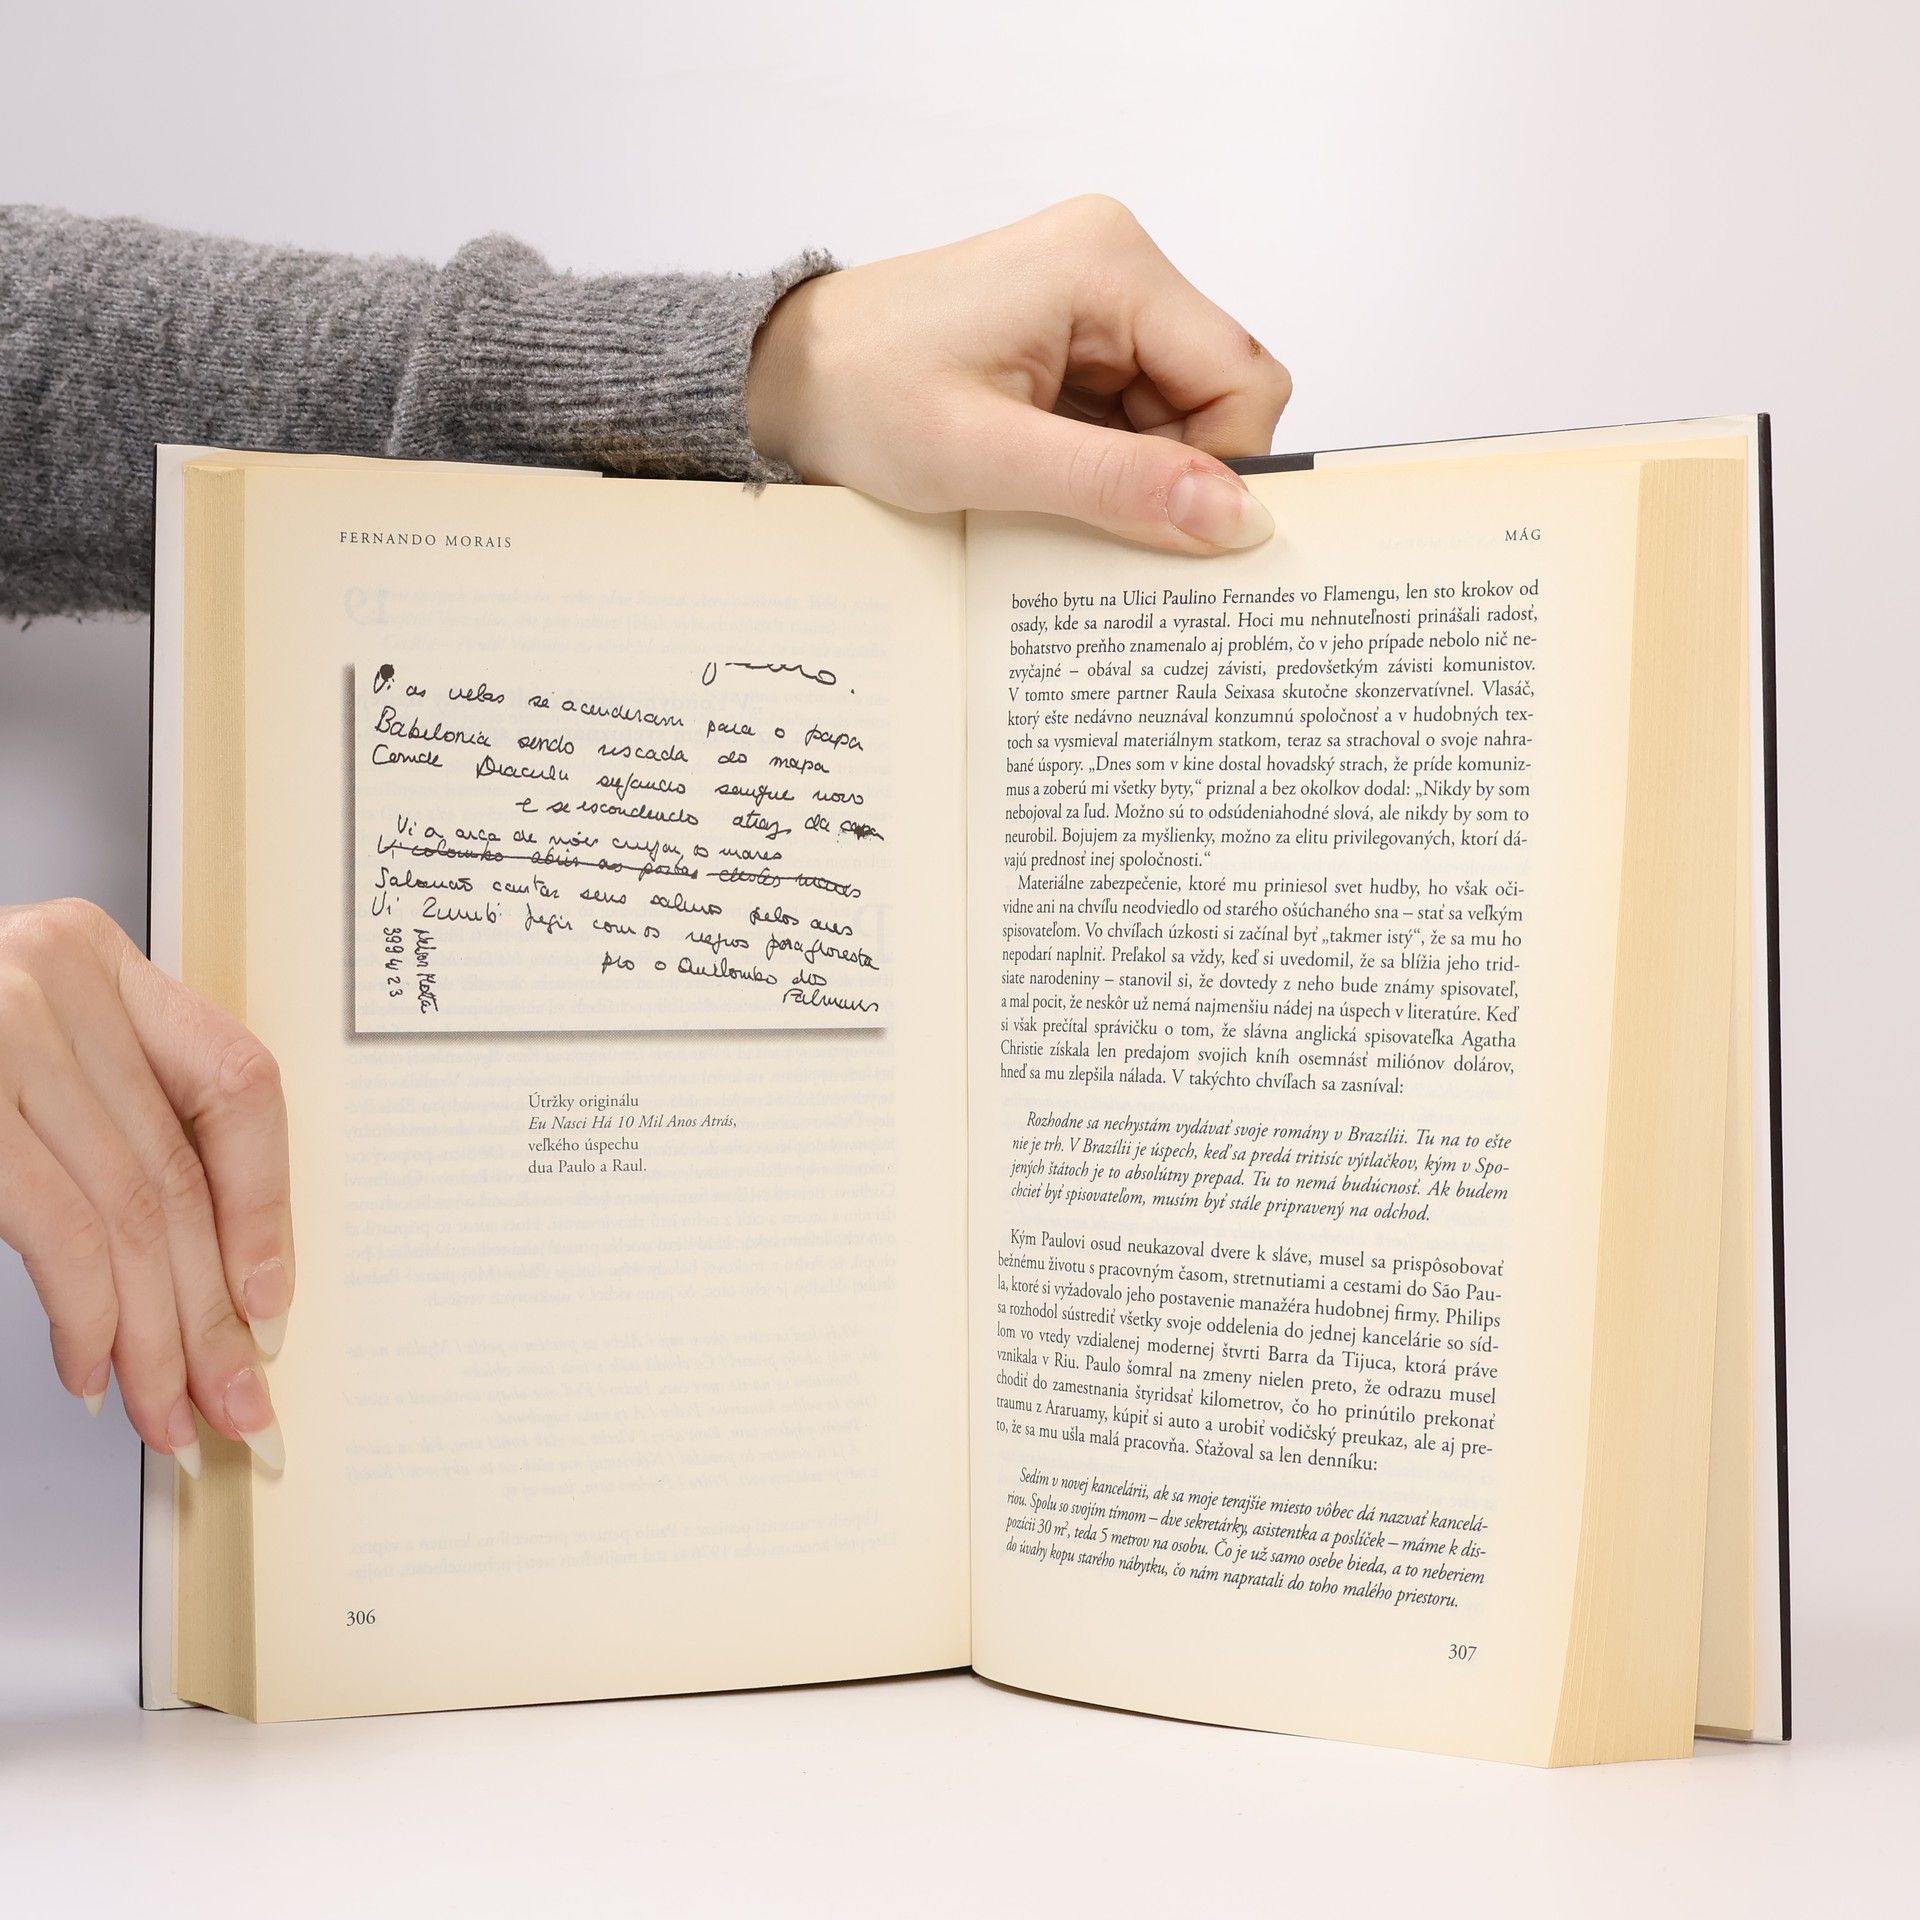 FERNANDO MORAIS
Vi as velas se acenderam para o papa
Babelonia sendo riscada do mapa
Conde Dracula sugando sangue novo
e se escondendo atraz da capa
Vi a arca de noé cruzar os mares
Vi colombo abrir as portas destes mares
Salomão cantar seus salmos pelos ares
Vi Zumbi fugir com os negros pra floresta
pro o Quilombo dos
Palmares
Nelson Motta
399 4 2 3
Útržky originálu
Eu Nasci Há 10 Mil Anos Atrás,
veľkého úspechu
dua Paulo a Raul.
306
MÁG
bového bytu na Ulici Paulino Fernandes vo Flamengu, len sto krokov od
osady, kde sa narodil a vyrastal. Hoci mu nehnuteľnosti prinášali radosť,
bohatstvo preňho znamenalo aj problém, čo v jeho prípade nebolo nič ne-
zvyčajné – obával sa cudzej závisti, predovšetkým závisti komunistov.
V tomto smere partner Raula Seixasa skutočne skonzervatívnel. Vlasáč,
ktorý ešte nedávno neuznával konzumnú spoločnosť a v hudobných tex-
toch sa vysmieval materiálnym statkom, teraz sa strachoval o svoje nahra-
bané úspory. „Dnes som v kine dostal hovadský strach, že príde komuniz-
mus a zoberú mi všetky byty,“ priznal a bez okolkov dodal: „Nikdy by som
nebojoval za ľud. Možno sú to odsúdeniahodné slová, ale nikdy by som to
neurobil. Bojujem za myšlienky, možno za elitu privilegovaných, ktorí dá-
vajú prednosť inej spoločnosti.“
Materiálne zabezpečenie, ktoré mu priniesol svet hudby, ho však oči-
vidne ani na chvíľu neodviedlo od starého ošúchaného sna – stať sa veľkým
spisovateľom. Vo chvíľach úzkosti si začínal byť „takmer istý“, že sa mu ho
nepodarí naplniť. Preľakol sa vždy, keď si uvedomil, že sa blížia jeho trid-
siate narodeniny – stanovil si, že dovtedy z neho bude známy spisovateľ,
a mal pocit, že neskôr už nemá najmenšiu nádej na úspech v literatúre. Keď
si však prečítal správičku o tom, že slávna anglická spisovateľka Agatha
Christie získala len predajom svojich kníh osemnásť miliónov dolárov,
hneď sa mu zlepšila nálada. V takýchto chvíľach sa zasníval:
Rozhodne sa nechystám vydávať svoje romány v Brazílii. Tu na to ešte
nie je trh. V Brazílii je úspech, keď sa predá tritisíc výtlačkov, kým v Spo-
jených štátoch je to absolútny prepad. Tu to nemá budúcnosť. Ak budem
chcieť byť spisovateľom, musím byť stále pripravený na odchod.
Kým Paulovi osud neukazoval dvere k sláve, musel sa prispôsobovať
bežnému životu s pracovným časom, stretnutiami a cestami do São Pau-
la, ktoré si vyžadovalo jeho postavenie manažéra hudobnej firmy. Philips
sa rozhodol sústrediť všetky svoje oddelenia do jednej kancelárie so síd-
lom vo vtedy vzdialenej modernej štvrti Barra da Tijuca, ktorá práve
vznikala v Riu. Paulo šomral na zmeny nielen preto, že odrazu musel
chodiť do zamestnania štyridsať kilometrov, čo ho prinútilo prekonať
traumu z Araruamy, kúpiť si auto a urobiť vodičský preukaz, ale aj pre-
to, že sa mu ušla malá pracovňa. Sťažoval sa len denníku:
Sedím v novej kancelárii, ak sa moje terajšie miesto vôbec dá nazvať kancelá-
riou. Spolu so svojím tímom – dve sekretárky, asistentka a poslíček – máme k dis-
pozícii 30 m², teda 5 metrov na osobu. Čo je už samo osebe bieda, a to neberiem
do úvahy kopu starého nábytku, čo nám napratali do toho malého priestoru.
307